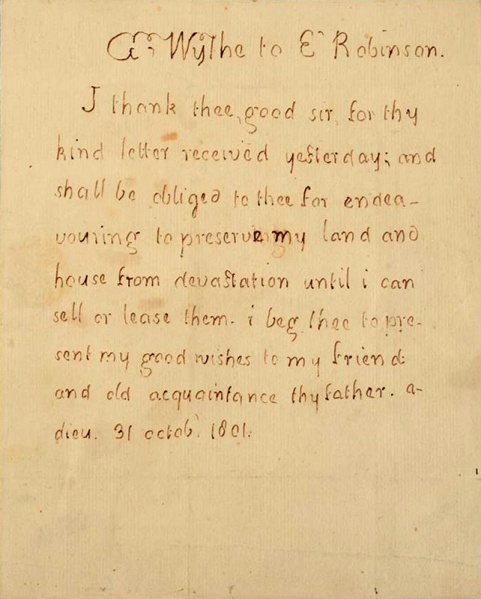 G: Wythe to E Robinson.
I thank thee, good sir, for thy
kind letter received yesterday; and
shall be obliged to thee for endea-
vouring to preserve my land and
house from devastation until i can
sell or lease them. i beg thee to pre-
sent my good wishes to my friend
and old acquaintance thy father. a-
dieu. 31 octob. 1801.